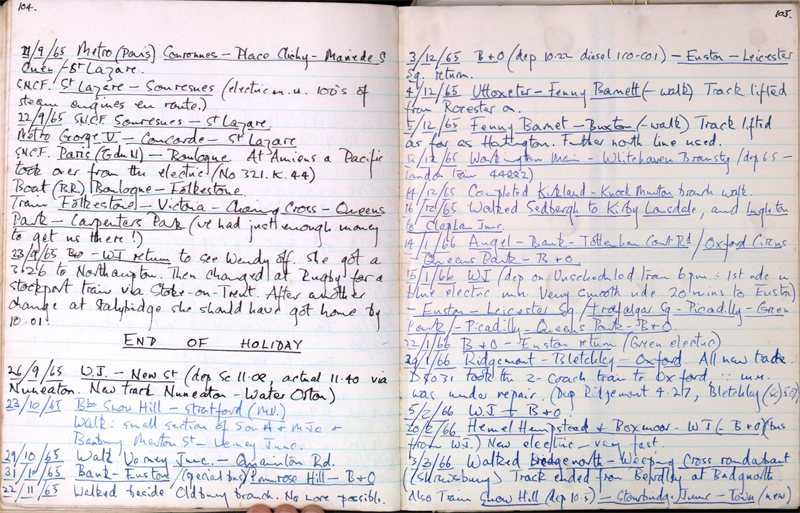 104.
21/9/65 Metro (Paris) Couronnes - Place Clichy - Mairie de S
Ouen / - St Lazare.
SNCF. St Lazare - Souresnes (electric m.u. 100's of
steam engines en route.)
22/9/65 SNCF Souresnes - St Lazare
Metro George V - Concorde - St Lazare
SNCF. Paris (G du N) - Boulogne. At Amiens a Pacific
took over from the electric (No 321. K. 44)
Boat (R.R.) Boulogne - Folkestone
Train Folkestone - Victoria - Charing Cross - Queens
Park - Carpenters Park (we had just enough money
to get us there!)
23/9/65 B+O - WJ return to see Wendy off. She got a
3.26 to Northampton. Then changed at Rugby for a
Stockport train via Stoke-on-Trent. After another
change at Stalybridge she should have got home by
10.01.
END OF HOLIDAY
26/9/65 W.J. - New St (dep Sc 11.02, actual 11.40 via
Nuneaton. New track Nuneaton - Water Orton)
23/10/65 Snow Hill - Stratford (M.U.)
Walk: small section of S on A + MJc &
Banbury Merton St - Verney Junc.
29/10/65 Walk Verney Junc. - Quainton Rd.
31/10/65 Bank - Euston / (special bus) Primrose Hill - B+O
22/11/65 Walked beside Oldbury branch. No more possible.
105.
3/12/65 B+O (dep 10.22 diesel 1CO-CO1) - Euston - Leicester
Sq. return.
4/12/65 Uttoxeter - Fenny Barnett (- walk) Track lifted
from Rocester on.
5/12/65 Fenny Barnet - Buxton (- walk) Track lifted
as far as Hartington. Further north line used.
12/12/65 Workington Main - Whitehaven Bransty (dep 6.5 -
London train 44882)
14/12/65 Completed Kirkland - Knock Murton branch walk.
16/12/65 Walked Sedbergh to Kirby Lonsdale, and Ingleton
to Clapham Junc.
14/1/66 Angel - Bank - Tottenham Court Rd / Oxford Circus
- Queens Park - B+O.
15/1/66 W.J (dep on Unscheduled train 6pm. 1st ride in
blue electric m.u. Very smooth ride 20 mins to Euston)
- Euston - Leicester Sq. / Trafalgar Sq - Picadilly - Green
Park / - Picadilly - Queens Park - B+O.
22/1/66 B+O - Euston return (Green electric)
29/1/66 Ridgemont - Bletchley - Oxford. All new track.
D5031 took the 2-coach train to Oxford, ∵ m.u.
was under repair. (Dep Ridgemont 4.27, Bletchley
5/2/66 W.J + B+O.
20/2/66 Hemel Hempstead & Boxmoor - WJ (- B+O) (bus
from WJ.) New electric - very fast.
3/3/66 Walked Bridgenorth - Weeping Cross roundabout
(Shrewsbury) Track ended from Bewdley at Bridgnorth.
Also Train Snow Hill (dep 10.5) - Stourbridge Junc - Town (new)